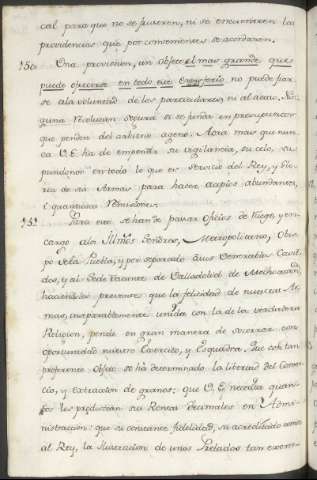 cal para que no se frustren, ni se encuentren las
providencias que por convenientes se acordaren.
150. Una provision, un objeto el mas grande, que
puede ofrecerse en todo este no puede fiar-
se ala voluntad de los particulares, ni al acaso. Nin-
guna resolucion segura si se fundan en presupuestos
que penden del arbitrio ageno. Ahora mas que nun-
ca V.E. ha de empeñar su vigilancia, su celo, su
pundonor en todo lo que es servicio del Rey, y Glo-
ria de sus Armas para hacer acopios abundantes,
è quantiosas remisiones.
151. Para esto se han de pasar oficios de Ruego, y en-
cargo alos Illmos Señores, Metropolitano, Obis-
po dela Puebla, y por separado à sus Venerables Cavil-
dos, y al Sede Vacante de Valladolid de Mechoacan,
haciendoles presente: que la felicidad de nuestras Ar-
mas, inseparablemente unida con la de la verdadera
Religion, pende en gran manera de socorrer con
oportunidad nuestro Exercito, y Esquadra: Que con tan
preferente objeto se ha determinado la libertad del Comer-
cio, y extraccion de granos: que V.E. necesita quan-
tos les produzcan sus Rentas Decimales en Admi-
nistracion: que su constante fidelidad, su acreditado amor
al Rey, la Ilustracion de unos Prelados tan